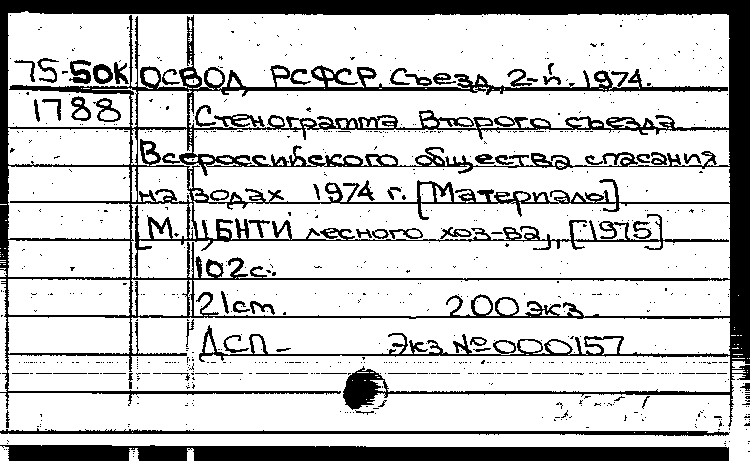 75-50К ОСВОД РСФСР. Съезд, 2-й. 1974.
1788 Стенограмма Второго съезда
Всероссийского общества спасания
на водах 1974 г. [Материалы]
[М., ЦБНТИ лесного хоз-ва], [1975]
102с.
21см. 200 экз.
ДСП- Экз. № 000157